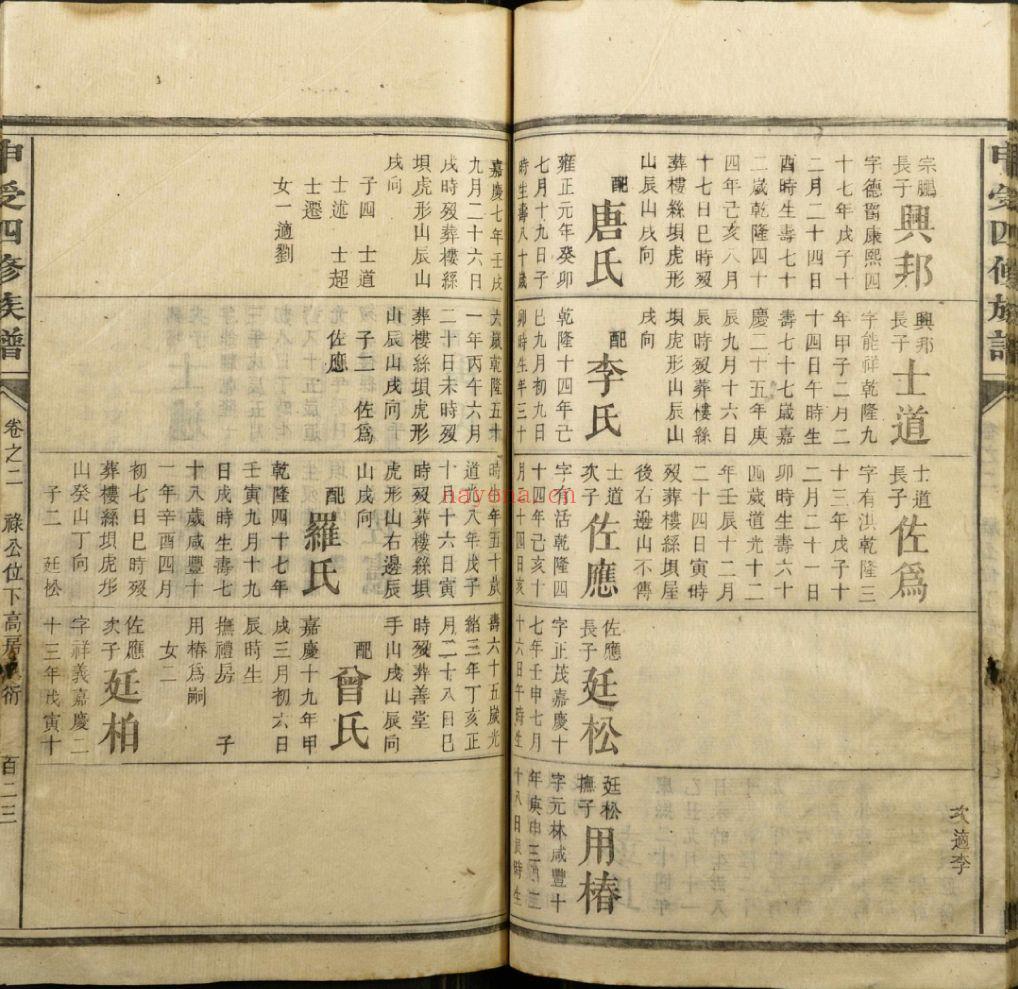 申受四修族譜
宗鵬
長子
興邦
字德畱康熙四
十七年戊子十
二月二十四日
酉時生壽七十
二歲乾隆四十
四年己亥八月
十七日巳時歿
葬樓絲墳虎形
山辰山戌向
配
唐氏
雍正元年癸卯
七月十九日子
時生壽八十歲
嘉慶七年壬戌
九月二十六日
戌時歿葬樓絲
墳虎形山辰山
戌向
子四 士道
士述 士超
士遷
女一適劉
興邦
長子
士道
字能祥乾隆九
年甲子二月二
十四日午時生
壽七十七歲嘉
慶二十五年庚
辰九月十六日
辰時歿葬樓絲
墳虎形山辰山
戌向
配
李氏
乾隆十四年己
巳九月初九日
卯時生年三十
六歲乾隆五十
一年丙午六月
二十日未時歿
葬樓絲墳虎形
山辰山戌向
子二 佐爲
佐應
士道
長子
佐爲
字有淇乾隆三
十三年戊子十
二月二十一日
卯時生壽六十
四歲道光十二
年壬辰十二月
二十四日寅時
歿葬樓絲墳屋
後右邊山不傳
士道
次子
佐應
字有活乾隆四
十四年己亥十
月十四日亥
時生年五十歲
道光八年戊子
十月十六日寅
時歿葬樓絲墳
虎形山右邊辰
山戌向
配
羅氏
乾隆四十七年
壬寅九月十九
日戌時生壽七
十八歲咸豐十
一年辛酉四月
初七日巳時歿
葬樓絲墳虎形
山癸山丁向
子二 廷松
佐應
長子
廷松
字正茂嘉慶十
七年壬申七月
十六日午時生
壽六十五歲光
緒三年丁亥正
月二十八日巳
時歿葬善堂
手山戌山辰向
配
曾氏
嘉慶十九年甲
戌三月初六日
辰時生
撫禮房 子
用椿爲嗣
女二
佐應
次子
廷柏
字祥義嘉慶二
十三年戊寅十
次適李
廷松
撫子
用椿
字元林咸豐十
年庚申三月
十八日辰時生
申受四修族譜
卷之二
祿公位下高居衍
百二三
nayona.cn